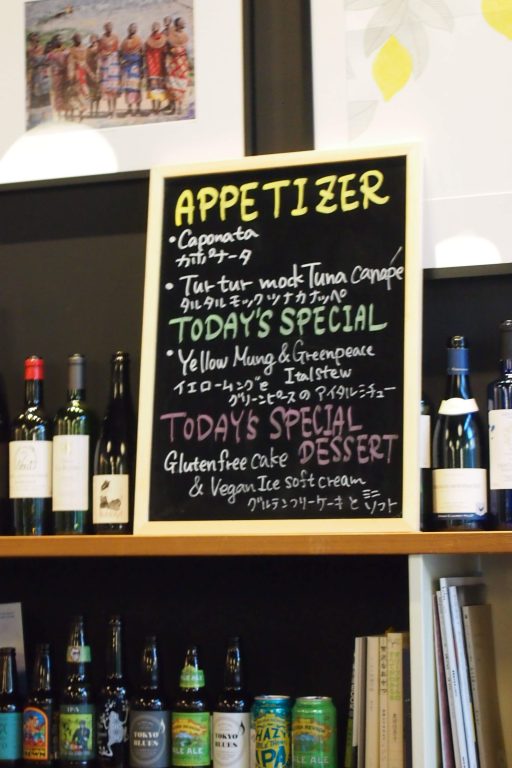 APPETIZER
• Caponata
カポナータ
• Tur tur mock Tuna canápe
タルタルモックツナカナッペ
TODAY'S SPECIAL
• Yellow Mung & Greenpeace
Italstew
イエロームングと
グリーンピースのアイタルシチュー
TODAY'S SPECIAL
DESSERT
Gluten free cake
& Vegan Ice soft cream
グルテンフリーケーキとミニ
ソフト
IPA
TOKYO
BLUES
PALE ALE
PALE ALE
TOKYO
BLUES
HAZY
LITTLE THING
IPA
PALE ALE